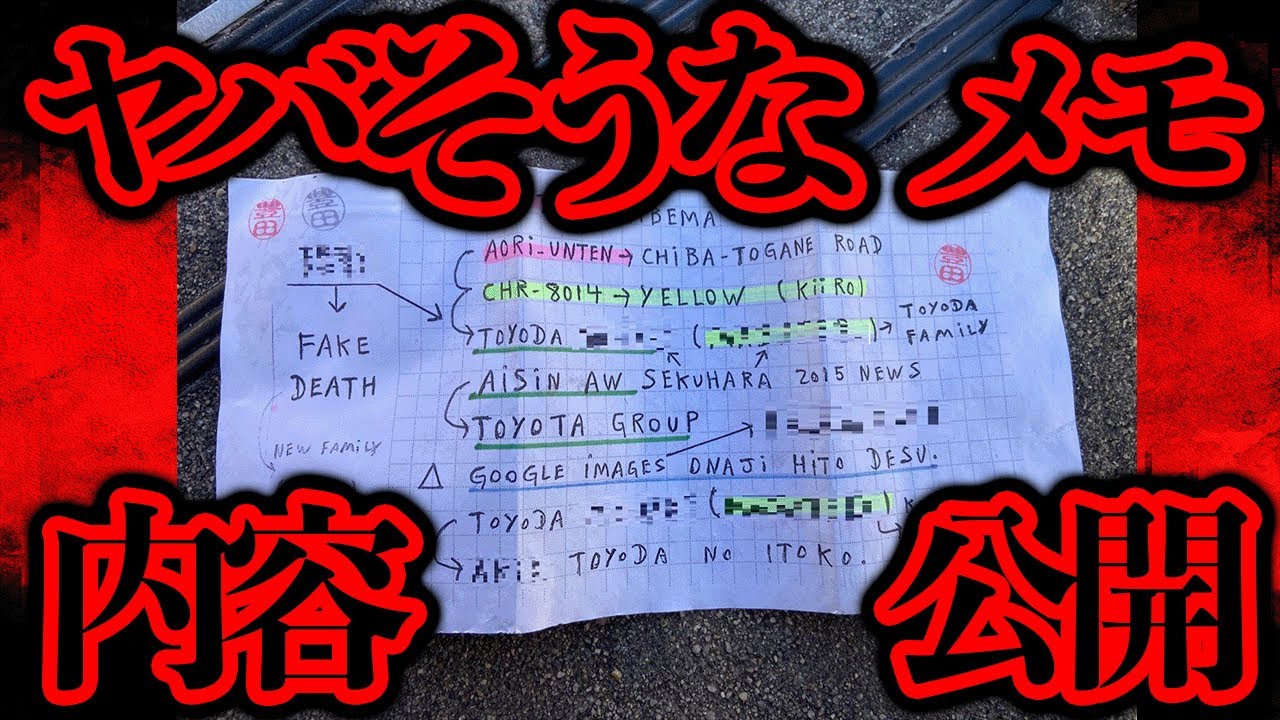 ヤバそうな メモ
BEMA
AORI-UNTEN → CHIBA-TOGANE ROAD
CHR-8014 → YELLOW (KiiRO)
TOYODA
TOYODA
FAMILY
FAKE
DEATH
AISIN AW SEKUHARA 2015 NEWS
TOYOTA GROUP
NEW FAMILY
△ GOOGLE IMAGES ONAJI HITO DESU.
TOYODA
TOYODA NO ITOKO.
内容 公開